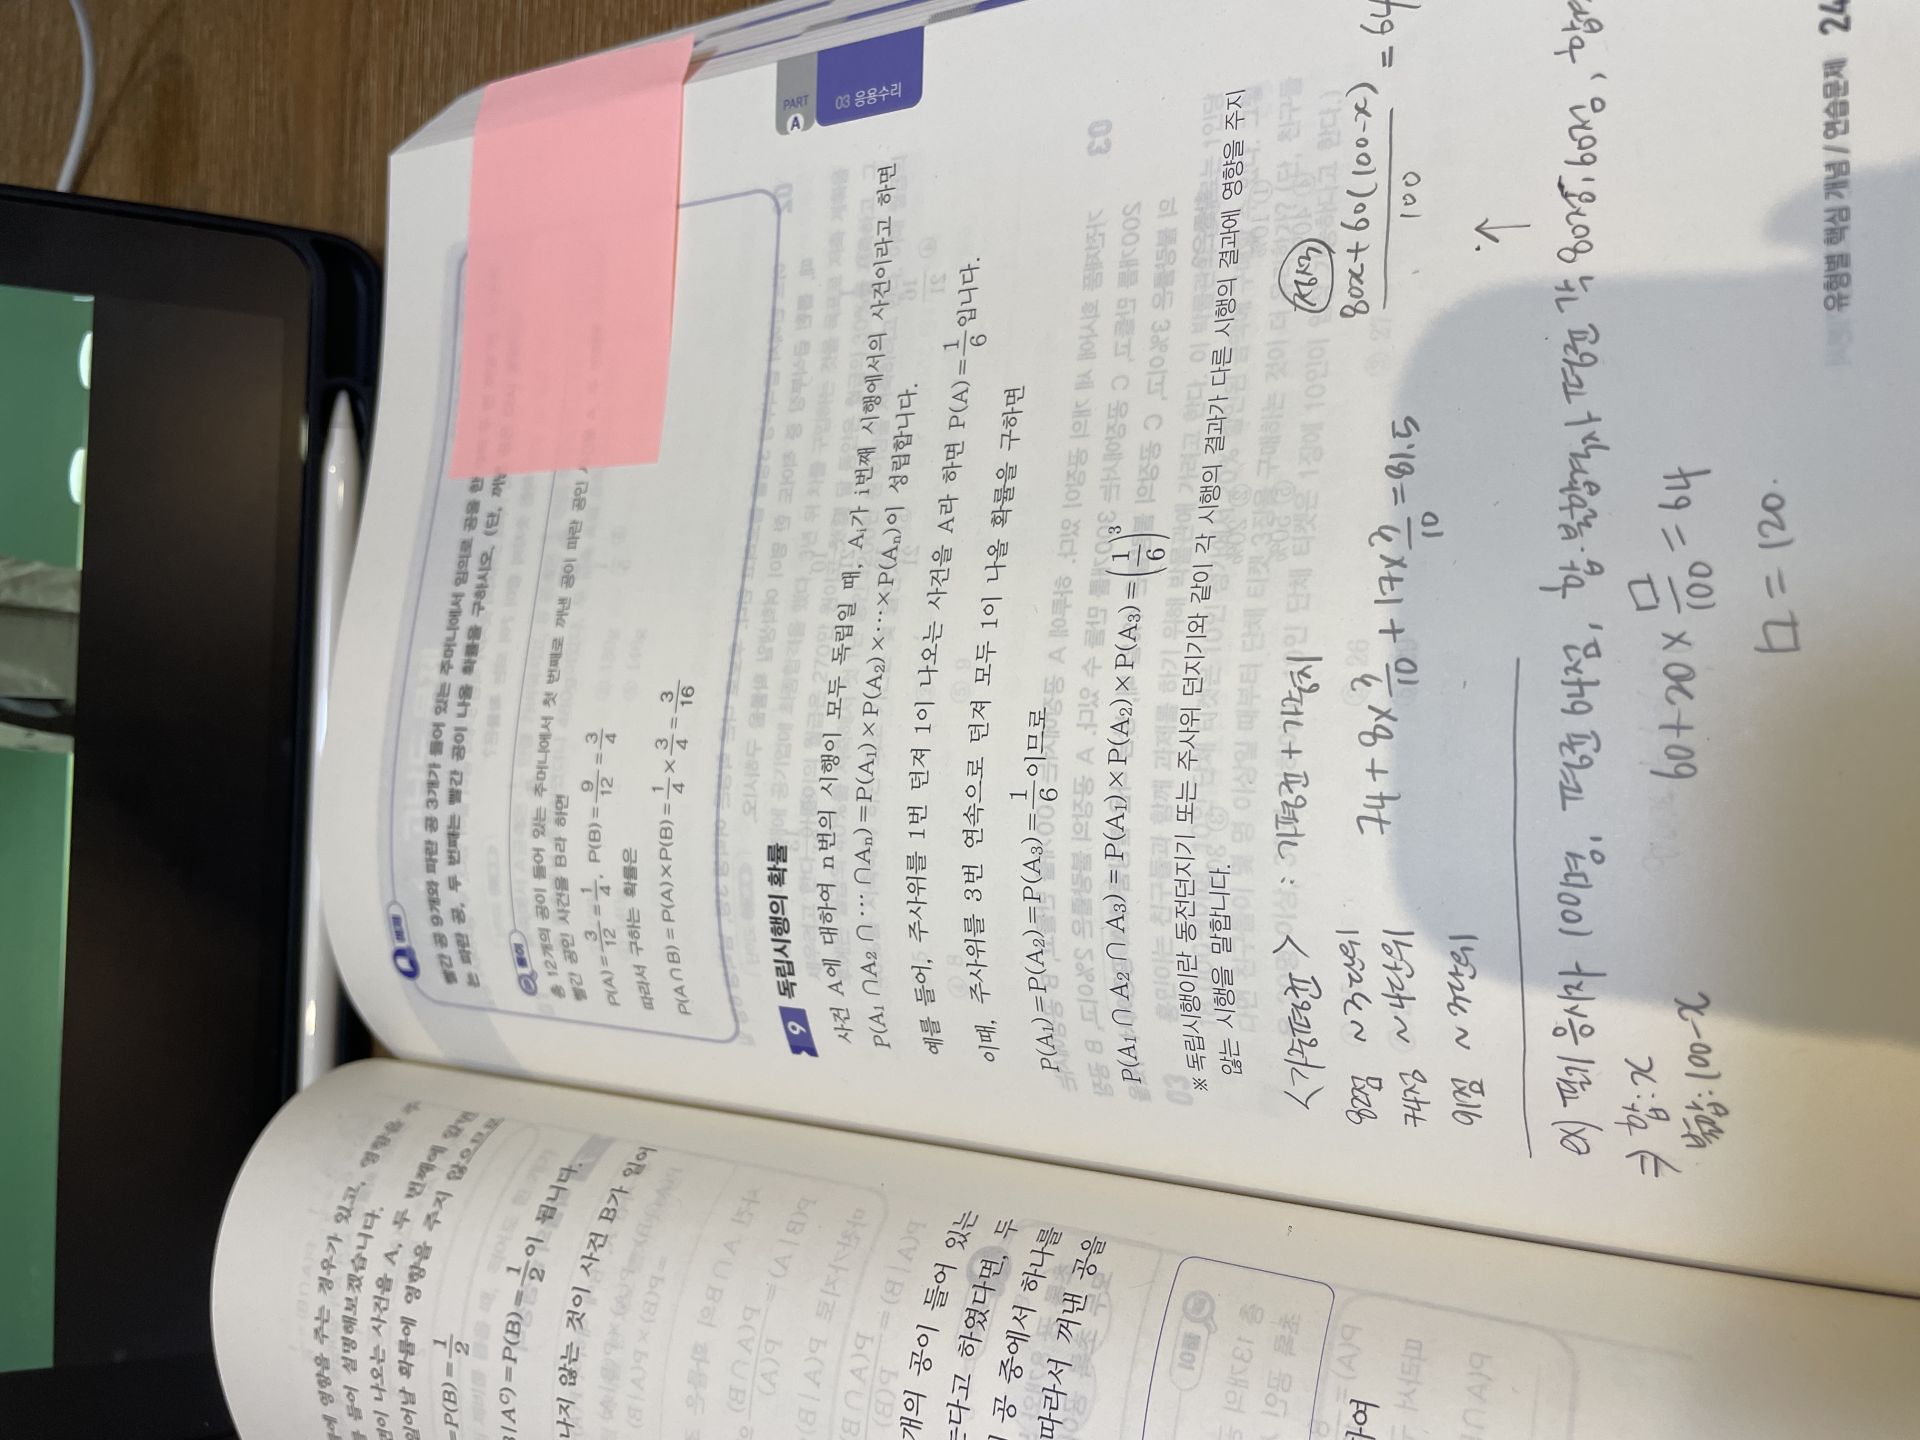 에 영향을 주는 경우가 있고, 영향을
들어 설명해보겠습니다.
면이 나오는 사건을 A, 두 번째에
일어날 확률에 영향을 주지 않으므로
=P(B)=1/2
=P(B)=1/2이 됩니다.
나지 않는 것이 사건 B가 일어
개의 공이 들어 있는
다고 하였다면, 두
공 중에서 하나를
따라서 꺼낸 공을
하여
Q 예제
빨간 공 9개와 파란 공 3개가 들어 있는 주머니에서 임의로 공을 한
는 파란 공, 두 번째는 빨간 공이 나올 확률을 구하시오. (단, 꺼낸
풀이
총 12개의 공이 들어 있는 주머니에서 첫 번째로 꺼낸 공이 파란 공인
빨간 공인 사건을 B라 하면
P(A)=3/12=1/4, P(B)=9/12=3/4
따라서 구하는 확률은
P(A∩B)=P(A)×P(B)=1/4×3/4=3/16
PART A
03 응용수리
9 독립시행의 확률
사건 A에 대하여 n번의 시행이 모두 독립일 때, Aᵢ가 i번째 시행에서의 사건이라고 하면
P(A₁∩A₂∩⋯∩Aₙ)=P(A₁)×P(A₂)×⋯×P(Aₙ)이 성립합니다.
예를 들어, 주사위를 1번 던져 1이 나오는 사건을 A라 하면 P(A)=1/6입니다.
이때, 주사위를 3번 연속으로 던져 모두 1이 나올 확률을 구하면
P(A₁)=P(A₂)=P(A₃)=1/6이므로
P(A₁∩A₂∩A₃)=P(A₁)×P(A₂)×P(A₃)=(1/6)³
※ 독립시행이란 동전던지기 또는 주사위 던지기와 같이 각 시행의 결과가 다른 시행의 결과에 영향을 주지
않는 시행을 말합니다.
<가중평균> : 가평균+가중치
82점 ~3단위
74점 ~4단위
91점 ~3단위
74+8×3/10+17×3/10=81.5
정석
80x+60(100-x)/100=64
ex) 필기 응시자 100명, 평균 64점, 합·불합격자 평균 각 80점, 60점,
⇒ 합:x
불합:100-x
60+20×ㅁ/100=64
ㅁ=120.
유형별 핵심 개념 / 연습문제 24